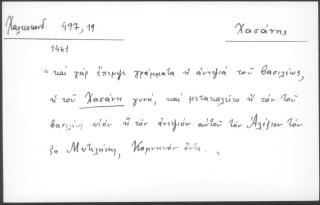 Χαλκοκονδ. 497,19 Χασάνης
1461
"καὶ γὰρ ἔπεμψε γράμματα ἡ ἀνεψιά τοῦ βασιλέως,
ἡ τοῦ Χασάνη γυνή, καὶ μετεκαλεῖτο ἢ τὸν τοῦ
βασιλέως υἱὸν ἢ τὸν ἀνεψιόν αὐτοῦ τὸν Ἀλέξιον τόν
ἐκ Μυτιλήνης, Κομνηνόν ὄντα. "